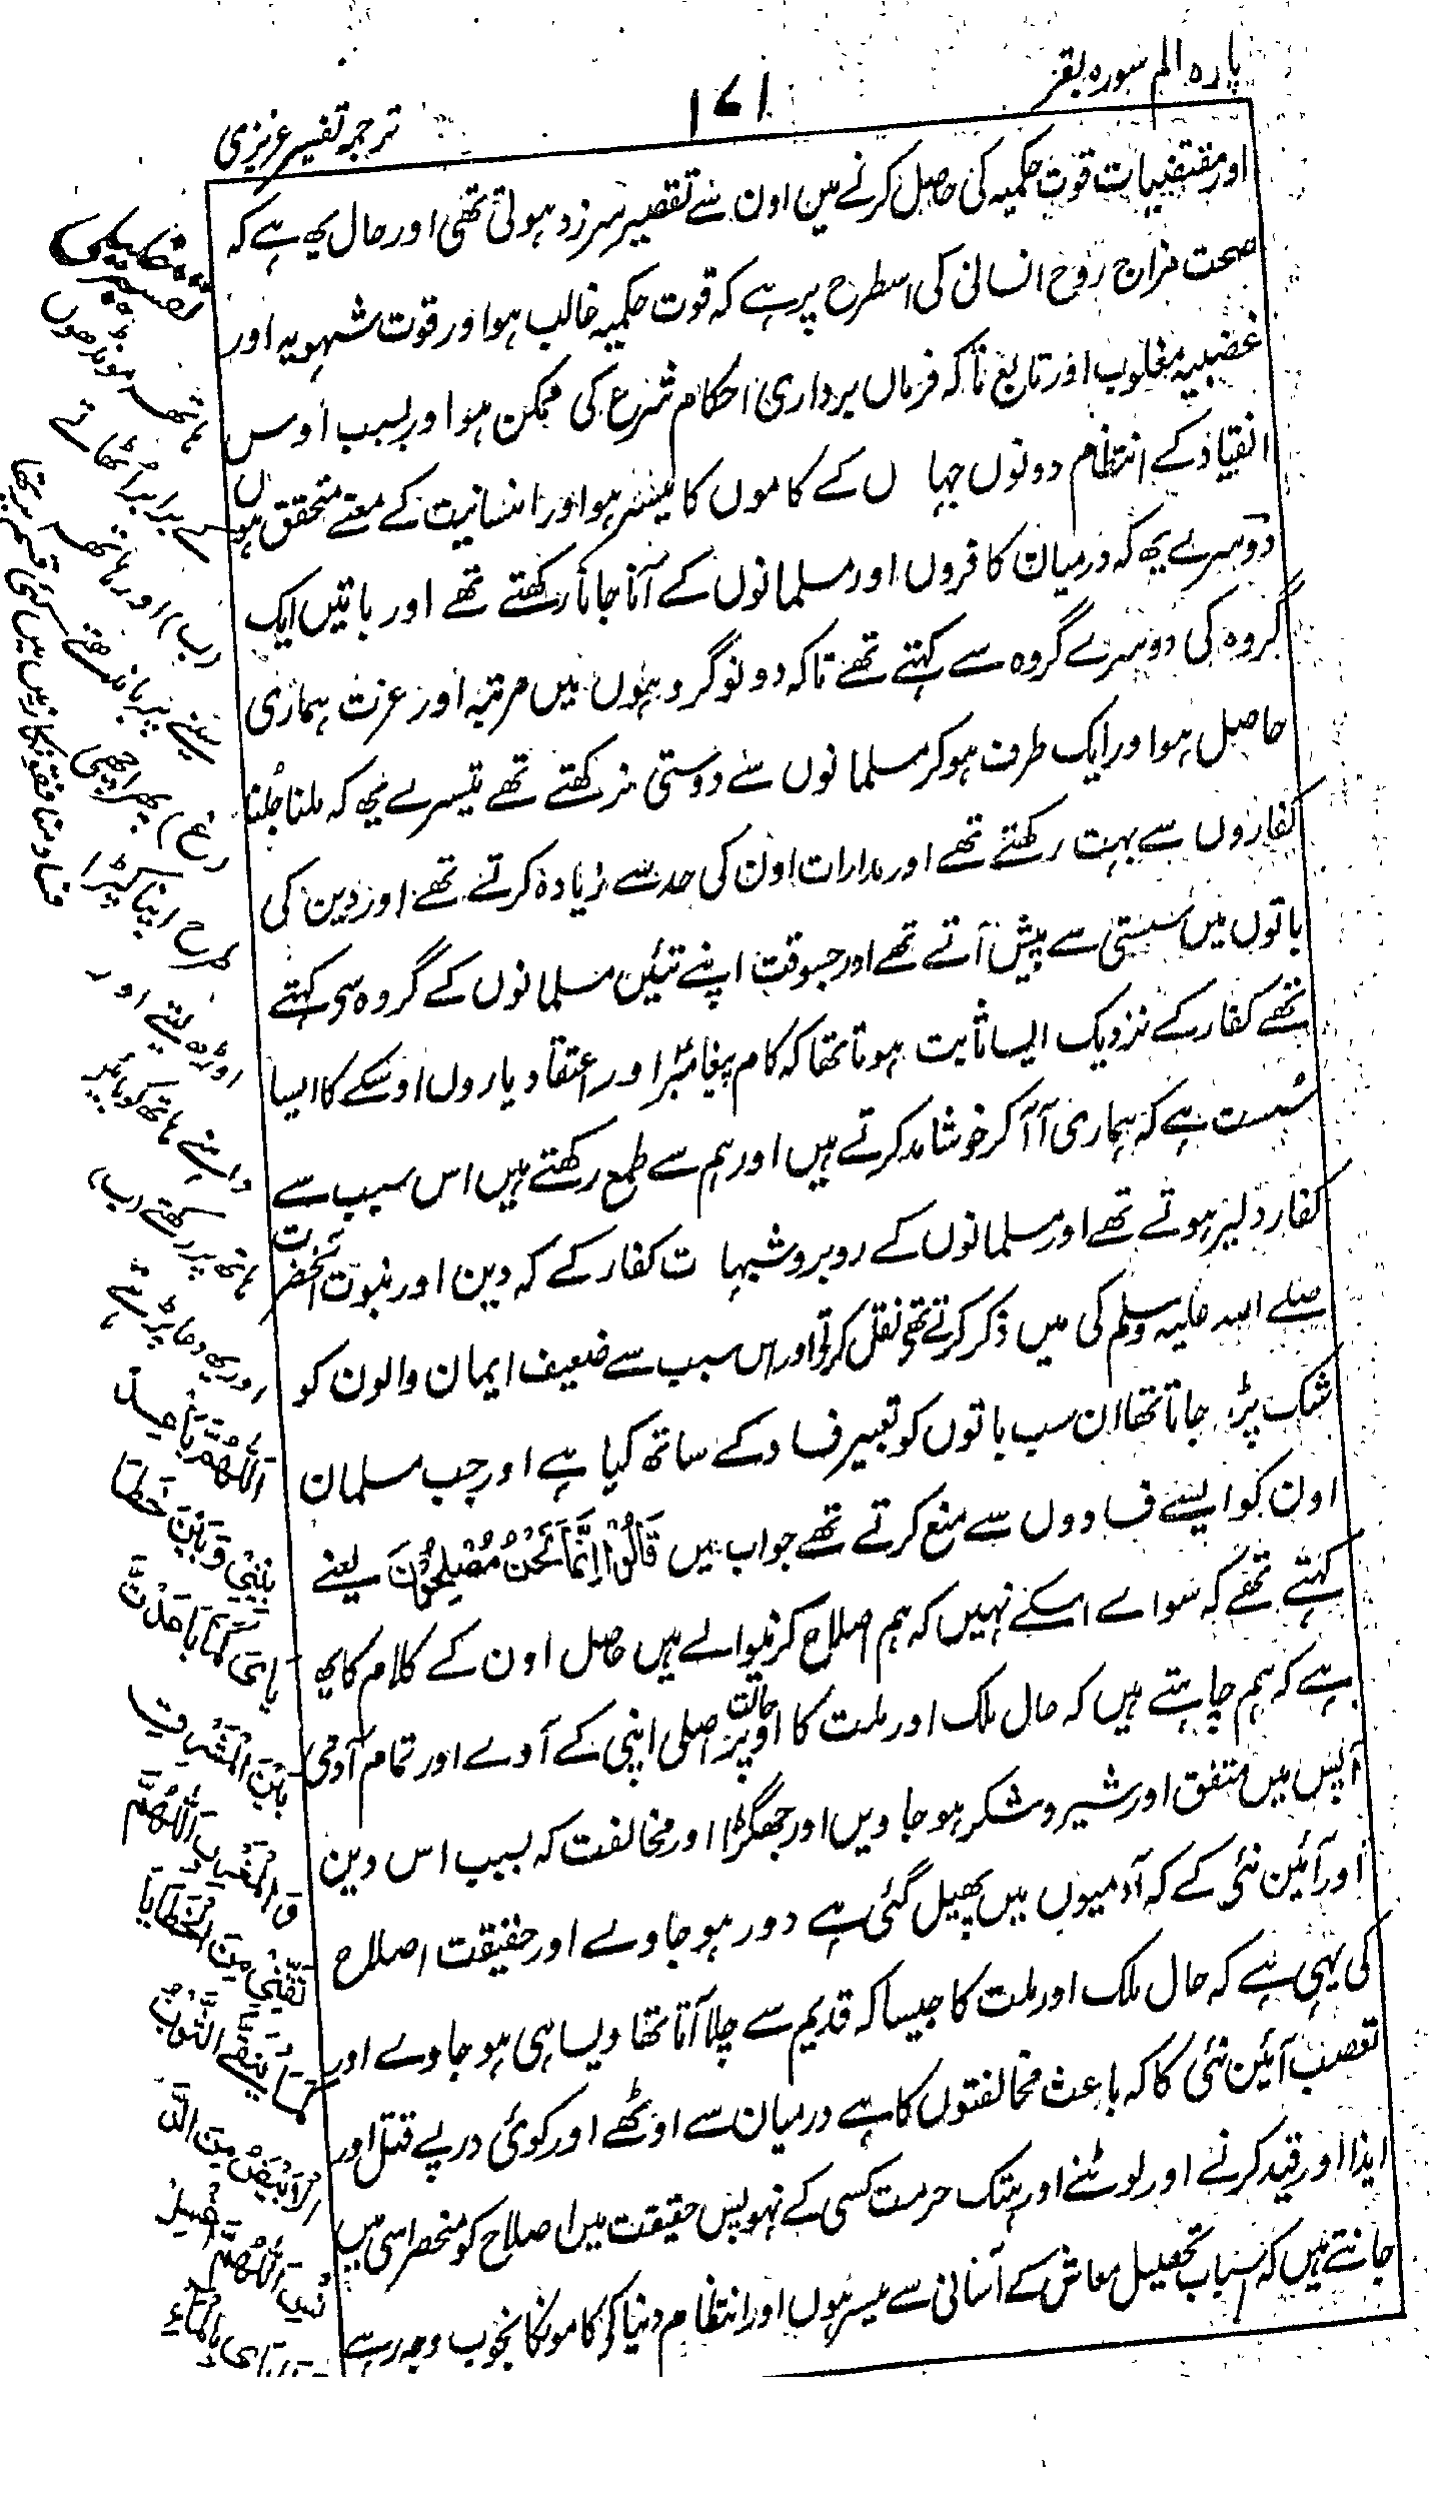 پارہ الم سورہ بقر
۱۷۱
ترجمہ تفسیر عزیزی
اور مقتضیات قوت حکمیہ کی حاصل کرنے مین اون سے تقصیر سرزد ہوتی تھی اور حال یہ ہے کہ
صحت مزاج روح انسانی کی اسطرح پر ہے کہ قوت حکمیہ غالب ہو اور قوت شہویہ اور
غضبیہ مغلوب اور تابع تاکہ فرماں برداری احکام شرع کی ممکن ہو اور بسبب اوس
انقیاد کے انتظام دونوں جہاں کے کاموں کا میسر ہو اور انسانیت کے معنے متحقق ہوں
دوسرے یہ کہ درمیان کافروں اور مسلمانوں کے آنا جانا رکھتے تھے اور باتیں ایک
گروہ کی دوسرے گروہ سے کہتے تھے تاکہ دونو گروہوں میں مرتبہ اور عزت ہماری
حاصل ہو اور ایک طرف ہو کر مسلمانوں سے دوستی نرکھتے تھے تیسرے یہ کہ ملنا جُلنا
کفاروں سے بہت رکھتے تھے اور مدارات اون کی حد سے زیادہ کرتے تھے اور دین کی
باتوں میں سستی سے پیش آتے تھے اور جسوقت اپنے تئین مسلمانوں کے گروہ سی کہتے
تھے کفار کے نزدیک ایسا ثابت ہوتا تھا کہ کام پیغامبر اور اعتقاد یاروں اوسکے کا ایسا
سُست ہے کہ ہماری آ آ کر خوشامد کرتے ہیں اور ہم سے طمع رکھتے ہیں اس سبب سے
کفار دلیر ہوتے تھے اور مسلمانوں کے روبرو شبہات کفار کے کہ دین اور نبوت آنحضرت
صلے اللہ علیہ وسلم کی میں ذکر کرتے تھے نقل کرتے اور اس سبب سے ضعیف ایمان والون کو
شک پڑ جاتا تھا ان سب باتوں کو تعبیر فساد کے ساتھ کیا ہے اور جب مسلمان
اون کو ایسے فسادوں سے منع کرتے تھے جواب میں قَالُوْا اِنَّمَا نَحْنُ مُصْلِحُوْنَ یعنے
کہتے تھے کہ سواے اسکے نہیں کہ ہم اصلاح کرنیوالے ہیں حاصل اون کے کلام کا یہ
ہے کہ ہم چاہتے ہیں کہ حال ملک اور ملت کا اوپر حالت اصلی اپنی کے آوے اور تمام آدمی
آپس میں متفق اور شیر و شکر ہو جاویں اور جھگڑا اور مخالفت کہ بسبب اس دین
اور آئین نئی کے کہ آدمیوں میں پھیل گئی ہے دور ہو جاوے اور حقیقت اصلاح
کی یہی ہے کہ حال ملک اور ملت کا جیسا کہ قدیم سے چلا آتا تھا ویسا ہی ہو جاوے اور
تعصب آئین نئی کا کہ باعث مخالفتوں کا ہے درمیان سے اوٹھے اور کوئی درپے قتل اور
ایذا اور قید کرنے اور لوٹنے اور ہتک حرمت کسی کے نہو پس حقیقت میں اصلاح کو منحصر اسی میں
جانتے ہیں کہ اسباب تحصیل معاش کے آسانی سے میسر ہوں اور انتظام دنیا کی کامونکا بخوب وجہ رہے
مونڈھوں
کے برابر اُٹھاتے
(ب) اور ہاتھ
سینے پر باندھتے
(غ) پھر اچھی
طرح اپنا کپڑا
اوڑھ لیتے اور
داہنے ہاتھ کو بائیں
ہاتھ پر رکھتے (ب)
اور یہ دعا پڑھتے
اَللّٰهُمَّ بَاعِدْ
بَيْنِيْ وَبَيْنَ خَطَا
يَايَ كَمَا بَاعَدْتَّ
بَيْنَ الْمَشْرِقِ
وَالْمَغْرِبِ اَللّٰهُمَّ
نَقِّنِيْ مِنَ الْخَطَايَا
كَمَا يُنَقَّى الثَّوْبُ
الْاَبْيَضُ مِنَ الدَّ
نَسِ اَللّٰهُمَّ اغْسِلْ
خَطَايَايَ بِالْمَاءِ